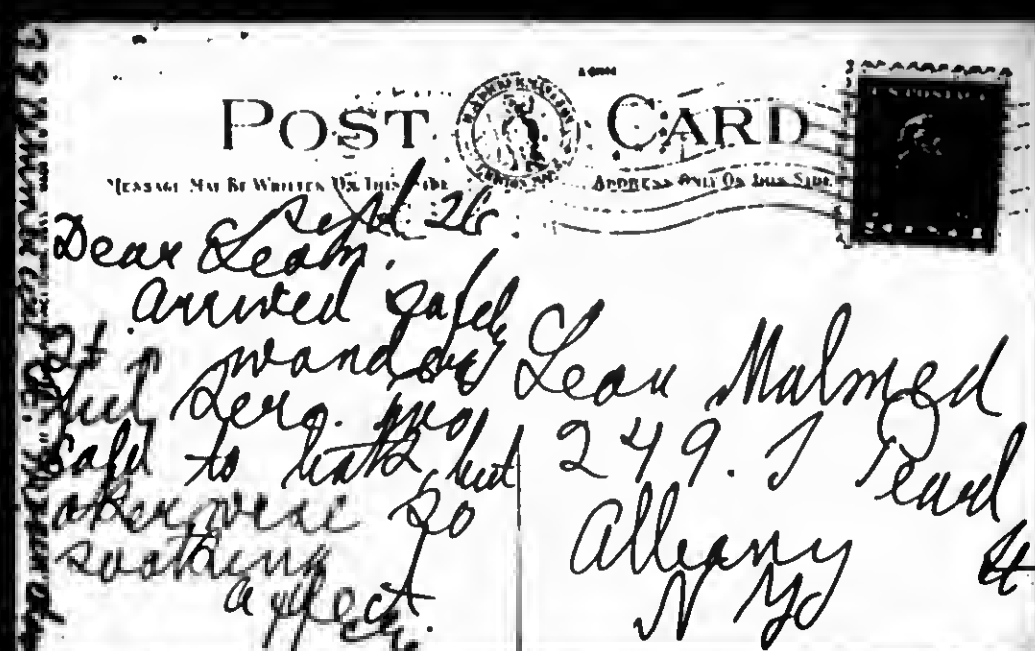 POST CARD
MESSAGE MAY BE WRITTEN ON THIS SIDE
ADDRESS ONLY ON THIS SIDE
U.S. POSTAGE
Sept 26
Dear Leon.
arrived safely
wander
here. not
safe to bath, but
otherwise so
soothing
affect
Leon Malmed
249. S Pearl
St
Albany
N Y